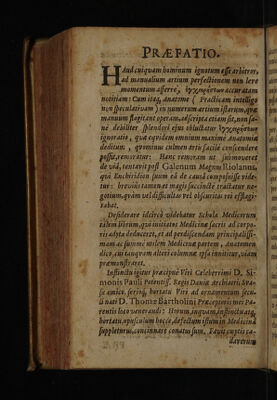 PRÆFATIO.
HAud cuiquam hominum ignotum esse arbitror,
ad manualium artium perfectionem non leve
momentum afferre, accuratam
notitiam: Cum itaq; anatome (Practicam intelligo
non speculativam) in numerum artium istarum, quæ
manuum flagitant operam, adscripta etiam sit, non sane
debiliter splendori ejus obluctatur
ignoratio, quæ eqvidem omnium maxime Anatomia
deditum, quominus culmen artis facile conscendere
possit, remoratur: Hanc remoram ut summoveret
de via, tentavit post Galenum Magnus Riolanus,
quâ Enchiridion suum eâ de causâ composuisse videtur:
brevius tamen et magis succinctè tractatur negotium,
quàm vel difficultas vel obscuritas rei efflagitabat.
Desiderare idcirco videbatur Schola Medicorum
talem librum, qui initiatos Medicina sacris ad corporis
adyta deduceret, et ad perdiscendam principalissimam
ac summè nobilem Medicinæ partem, Anatomen
dico, cui tanqvam alteri columnæ ipsa innititur, viam
præmonstraret.
Instinctu igitur præcipuè Viri Celeberrimi D. Simonis
Pauli Potentiss. Regis Daniæ Archiatri
amico, seriog, hortatu Viri ad ornamentum seculi
nati D. Thomæ Bartholini Præceptoris mei Parentis
loco venerandi: Horum, inquam, instinctu atq;
hortatu, opusculum hocce, defectum istum in Medicina
suppleturus, concinnare conatus sum. Favit cæptis cadaverum